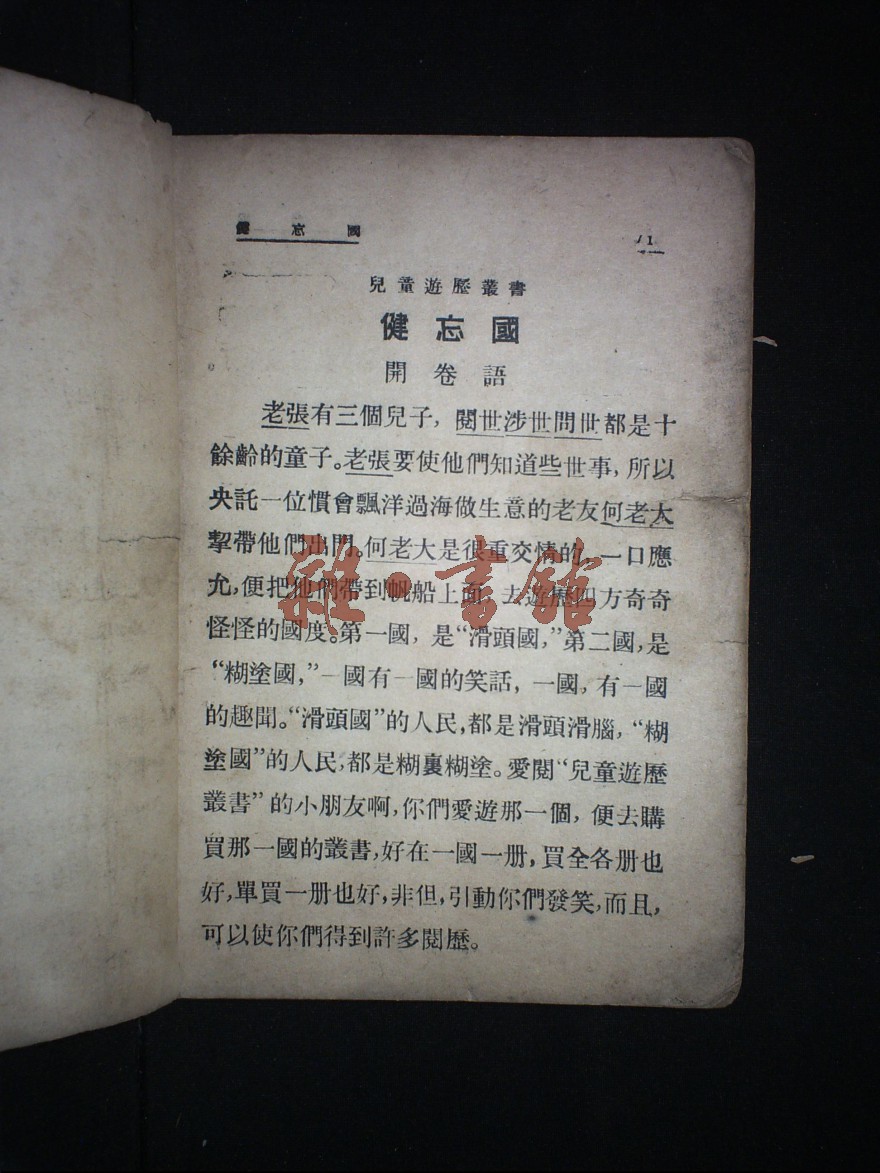 健忘國
1
兒童遊歷叢書
健忘國
開卷語
老張有三個兒子，閱世涉世問世都是十
餘齡的童子。老張要使他們知道些世事，所以
央託一位慣會飄洋過海做生意的老友何老大
挈帶他們出門。何老大是很重交情的，一口應
允，便把他們帶到帆船上面，去遊歷四方奇奇
怪怪的國度。第一國，是“滑頭國，”第二國，是
“糊塗國，”一國有一國的笑話，一國，有一國
的趣聞。“滑頭國”的人民，都是滑頭滑腦，“糊
塗國”的人民，都是糊裏糊塗。愛閱“兒童遊歷
叢書”的小朋友啊，你們愛遊那一個，便去購
買那一國的叢書，好在一國一册，買全各册也
好，單買一册也好，非但，引動你們發笑，而且，
可以使你們得到許多閱歷。
雜·書館